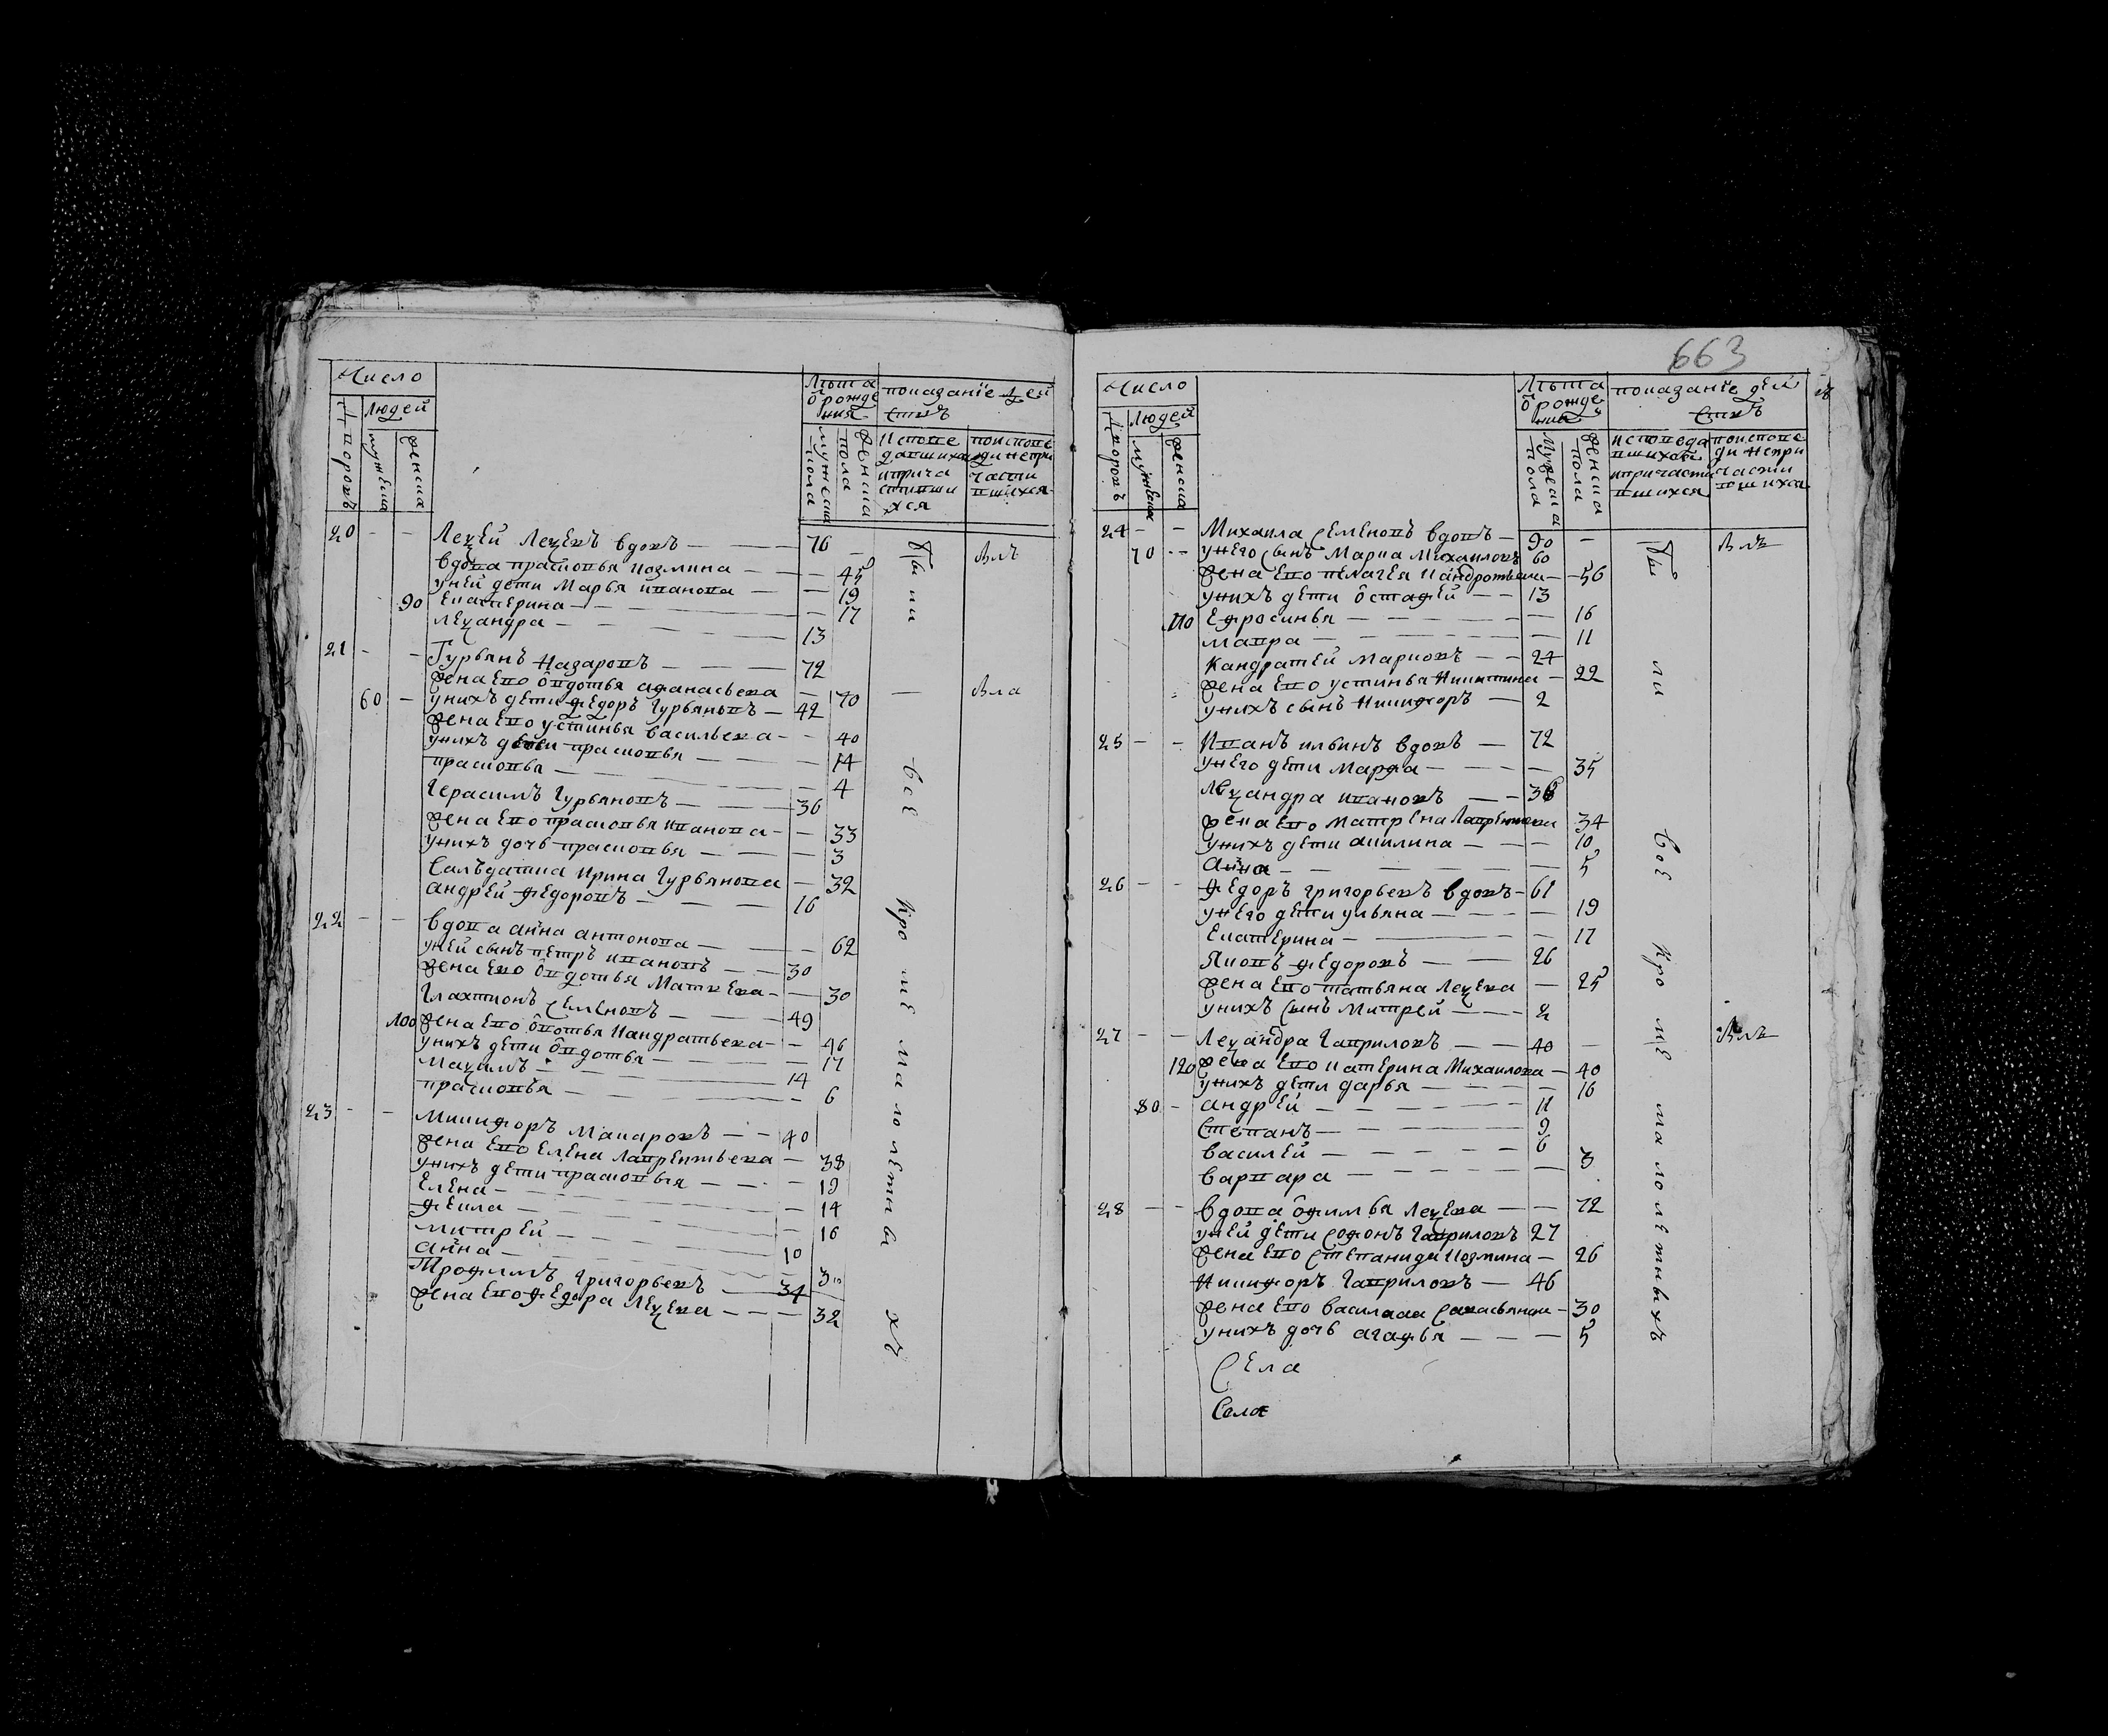 Число
Людей
дворовъ
мужеска
женска
Лѣта
о рожде
ния
мужеска
пола
женска
пола
показанїе дей
ствъ
исповедавшихся
и прича
стивши
хся
по исповеди не при
части
вшихся
20 - - Леѯей Леѯевъ вдовъ — 76 - Влѣ
вдова прасковья козмина — 45
у ней дети Марья иванова — 19
90 Екатерина — 17
леѯандра — 13
21 - - Гурьянъ Назаровъ — 72
жена ево овдотья афанасьева — 70 - Вла
60 - у нихъ дети федоръ гурьяновъ — 42
жена ево устинья васильева — 40
у нихъ дети прасковья — 14
прасковья — 4
герасимъ гурьяновъ — 36
жена ево прасковья иванова — 33
у нихъ дочь прасковья — 3
Салъдатка ирина гурьянова — 32
андрей федоровъ — 16
22 - - вдова анна антонова — 62
у ней сынъ петръ ивановъ — 30
жена ево овдотья Матвева — 30
Глахтионъ Семеновъ — 49
100 жена ево овотья кандратьева — 46
у нихъ дети овдотья — 17
маѯимъ — 14
прасковья — 6
23 - - Микифоръ Макаровъ — 40
жена ево Елена лаврентьева — 38
у нихъ дети прасковья — 19
Елена — 14
фекла — 16
митрей — 10
анна — 3
Трофимъ григорьевъ — 34
жена ево федора леѯева — 32
были все кроме малолетныхъ
663
Число
Людей
дворовъ
мужеска
женска
Лѣта
о рожде
ния
мужеска
пола
женска
пола
показанїе дей
ствъ
исповеда
вшихся
и причасти
вшихся
по исповеди не при
части
вшихся
24 - - Михаила Семеновъ вдовъ — 90 - Влѣ
70 - - у него сынъ Марка Михаиловъ 60
жена ево пелагея кандротьева — 56
у нихъ дети остафей — 13
110 Ефросинья — 16
мавра — 11
Кандратей Марковъ — 24
жена ево устинья Никитина — 22
у нихъ сынъ Никифоръ — 2
25 - - Иванъ ильинъ вдовъ — 72
у него дети марфа — 35
леѯандра ивановъ — 36
жена ево матрена лаврентева 34
у нихъ дети акилина — 10
анна — 5
26 - - Федоръ григорьевъ вдовъ — 61
у него дети ульяна — 19
Екатерина — 17
Яковъ федоровъ — 26
жена ево татьяна леѯева — 25
у нихъ сынъ Митрей — 2
27 - - Леѯандра гавриловъ — 40 - Влѣ
120 жена ево катерина Михаилова — 40
у нихъ дети дарья — 16
80 - андрей — 11
Степанъ — 9
василей — 6
варвара — 3
28 - - вдова офимья леѯева — 72
у ней дети софонъ гавриловъ 27
жена ево степанида козмина — 26
Никифоръ гавриловъ — 46
жена ево василиса — 30
у нихъ дочь агафья — 5
были все кроме малолетныхъ
Села
Села